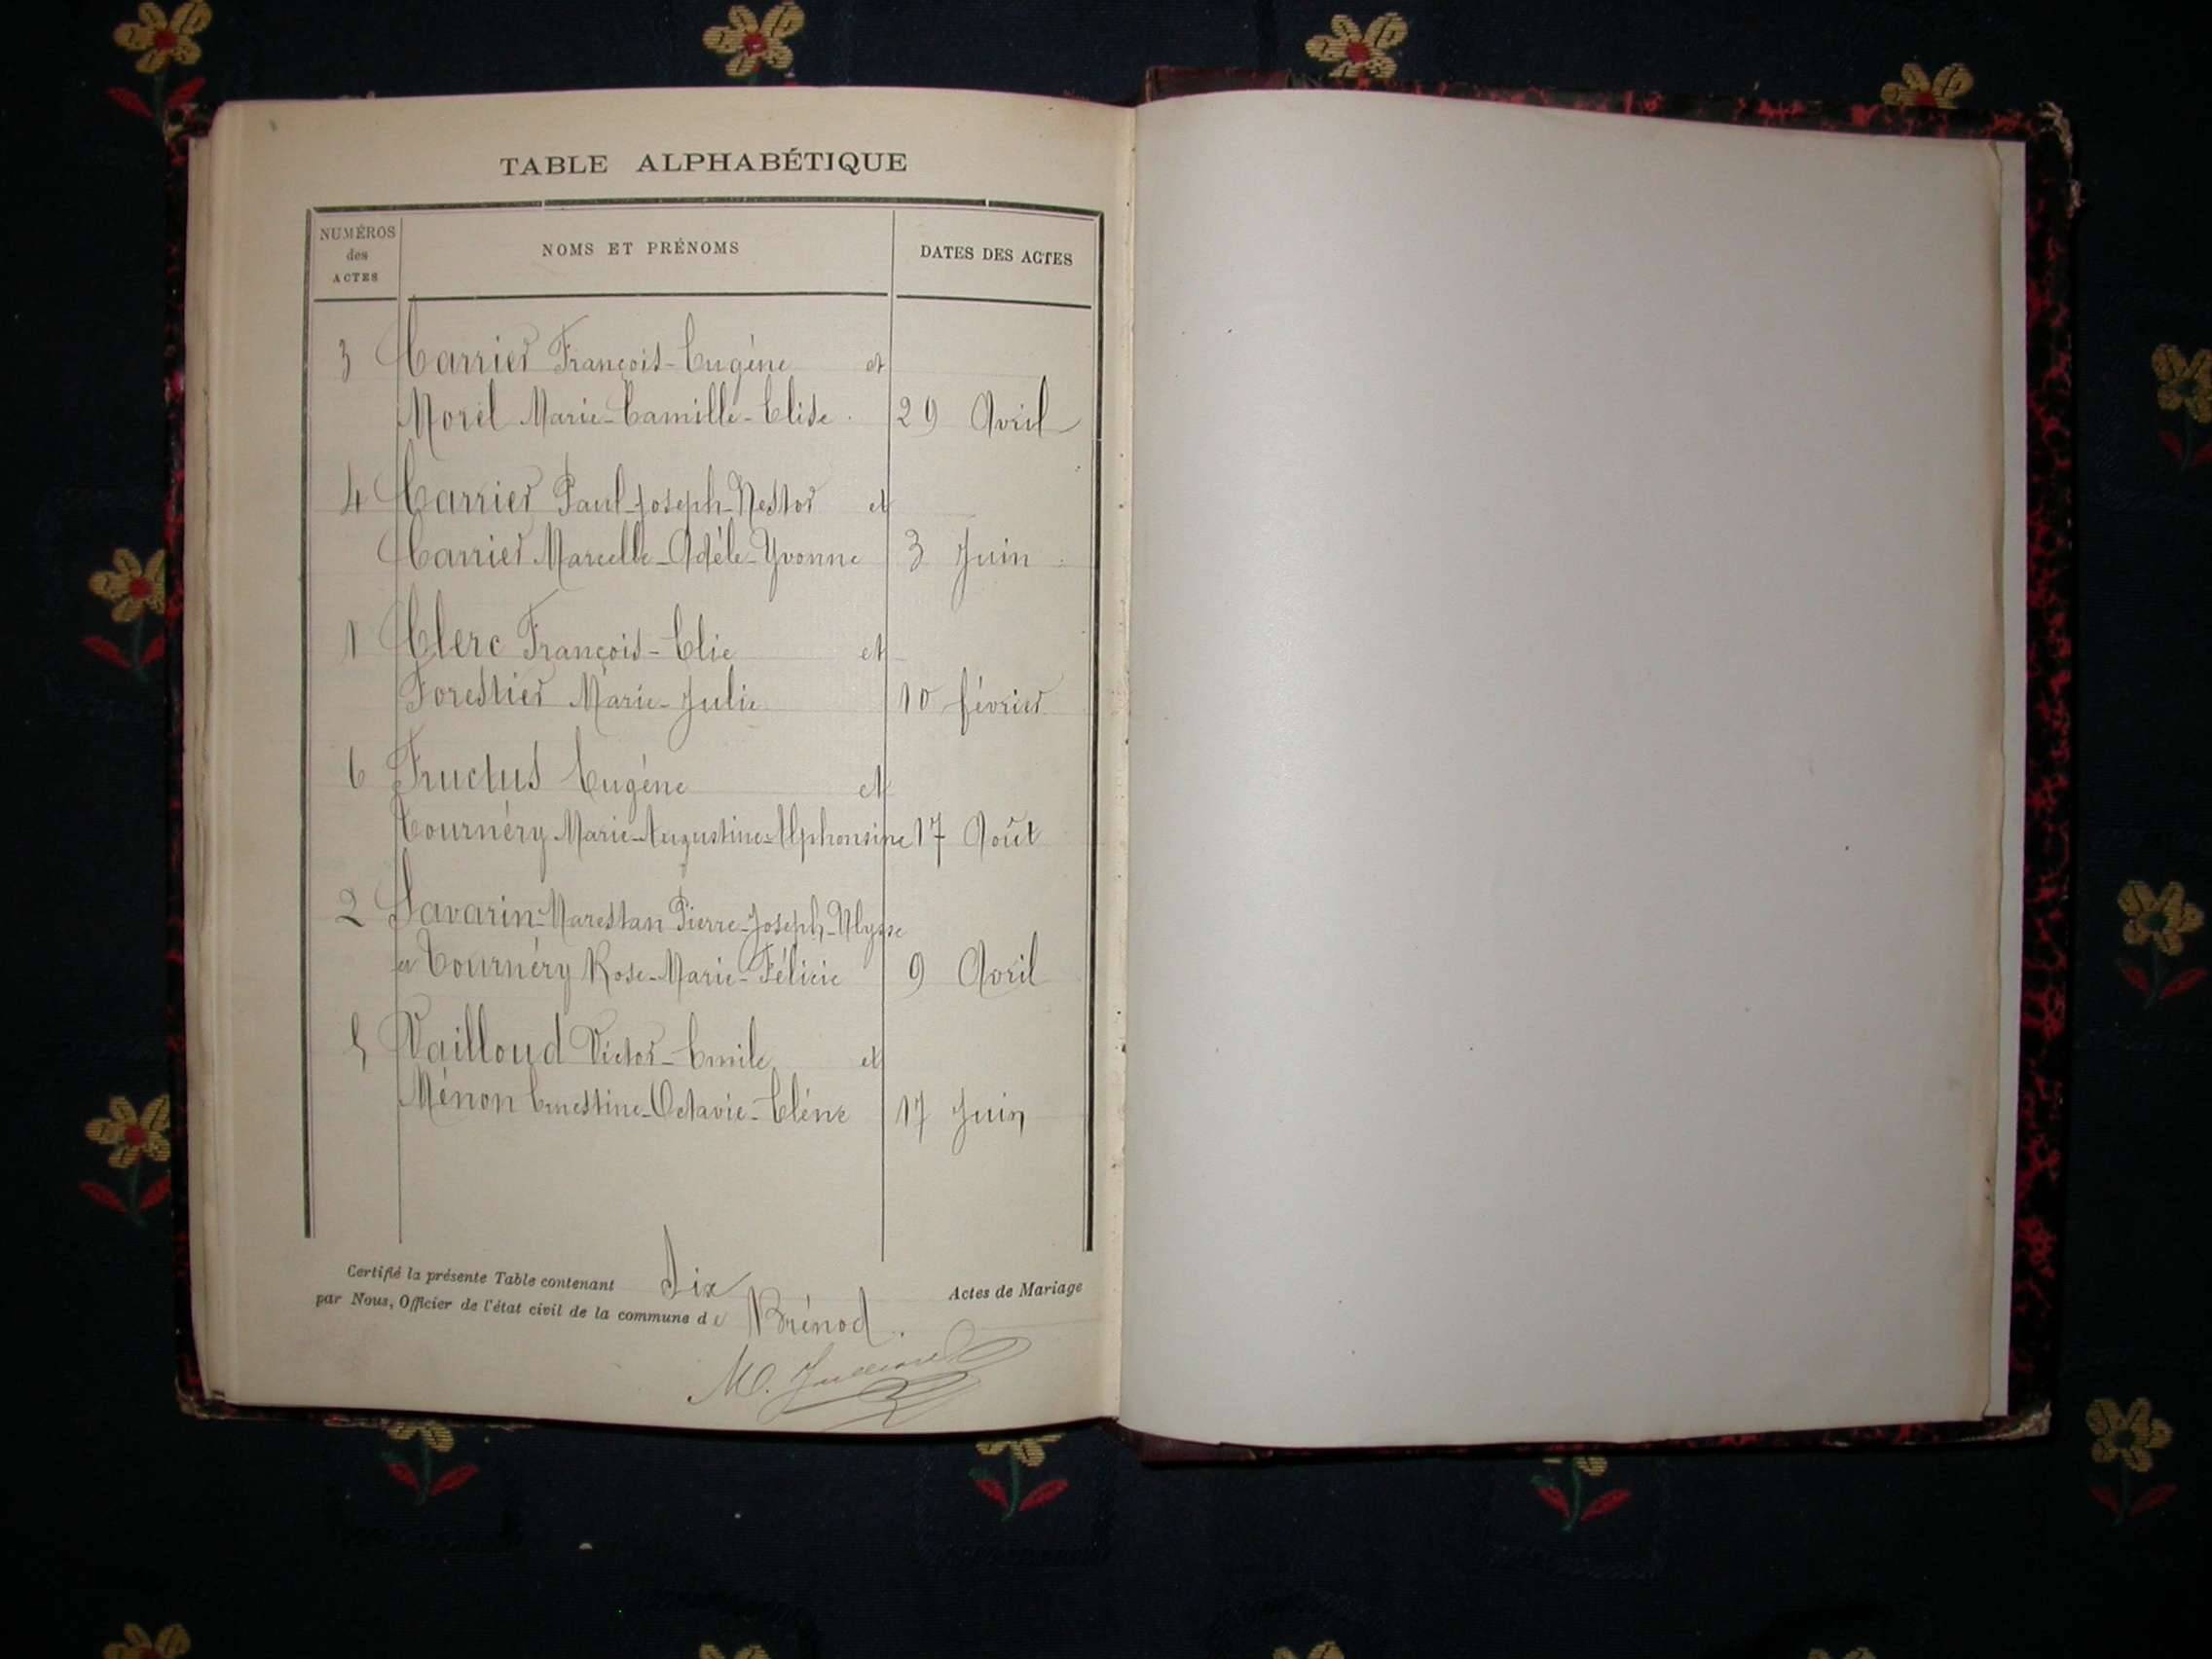 TABLE ALPHABÉTIQUE
NUMÉROS des ACTES NOMS ET PRÉNOMS DATES DES ACTES
3 Carrier François-Eugène et
Morel Marie-Camille-Elise. 29 Avril
4 Carrier Paul-Joseph-Nestor et
Carrier Marcelle-Adèle-Yvonne 3 Juin
1 Clerc François-Elie et
Forestier Marie-Julie 10 février
6 Fructus Eugène et
Tournéry Marie-Augustine-Alphonsine 17 Août
2 Savarin-Marestan Pierre-Joseph-Ulysse
et Tournéry Rose-Marie-Félicie 9 Avril
5 Vailloud Victor-Emile et
Ménon Ernestine-Octavie-Elène 17 Juin
Certifié la présente Table contenant Six Actes de Mariage
par Nous, Officier de l'état civil de la commune de Brénod.
M.